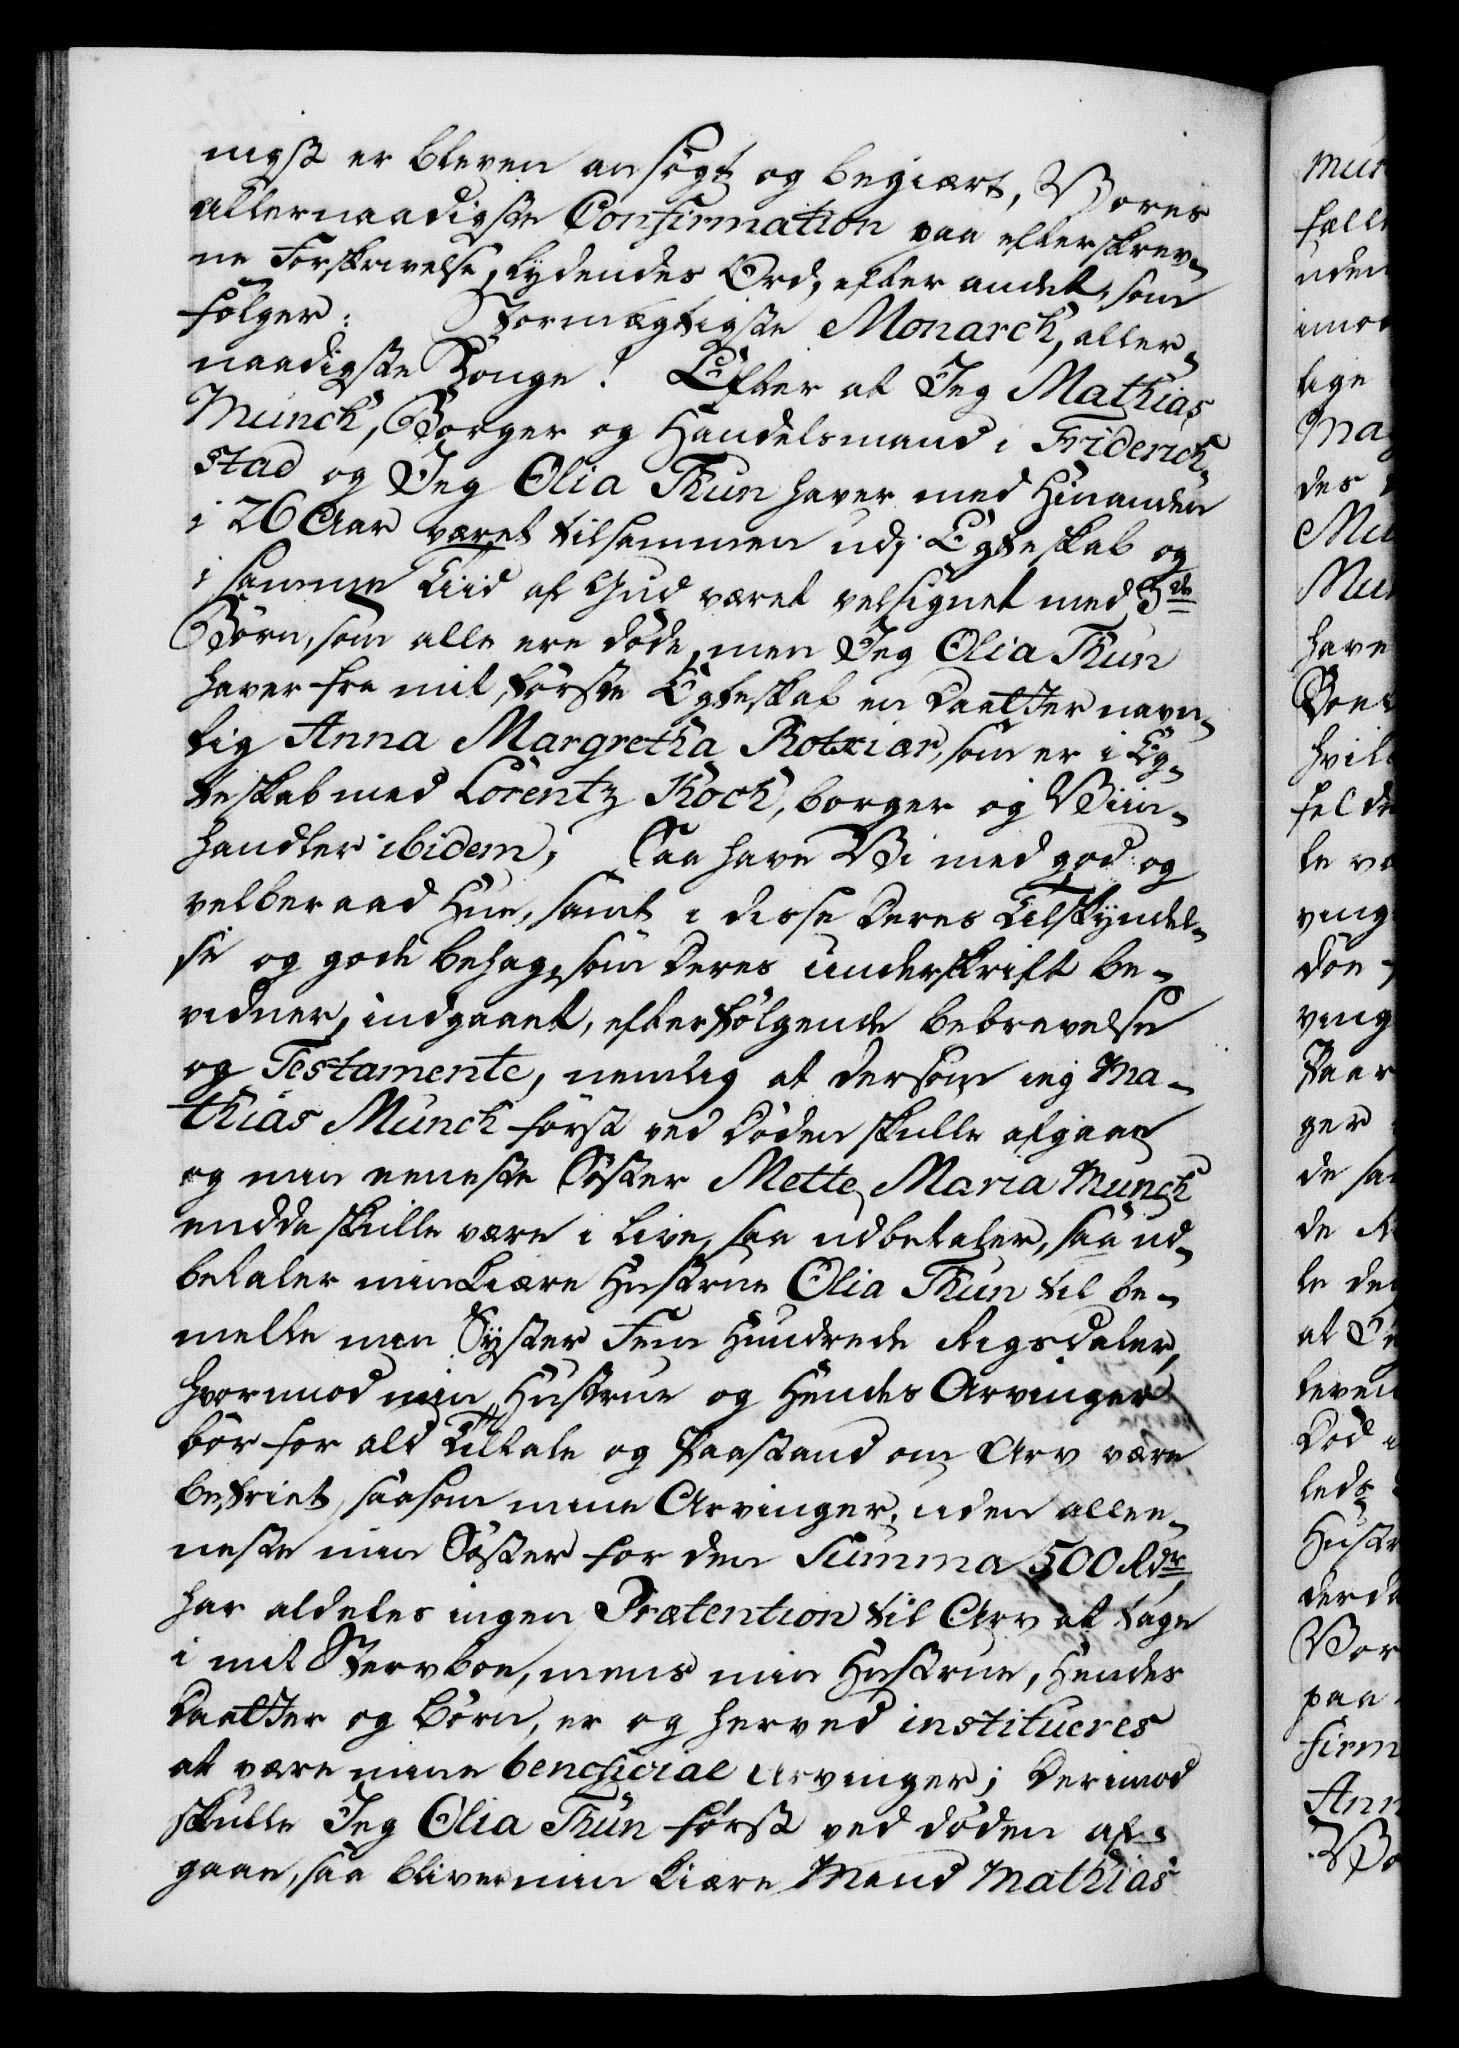 nigst er bleven ansögt og begiært, Vores
allernaadigste Confirmation paa efterskrev-
ne Forskrivelse, lydendes Ord, efter andet, som
følger: Stormægtigste Monarch, aller-
naadigste Konge! Efter at Jeg Mathias
Münch, Borger og Handelsmand i Friderich-
stad og Jeg Olia Thun haver med Hinanden
i 26 Aar været tilsammen udj Egteskab og
i samme Tiid af Gud været velsignet med 5de
Börn, som alle ere döde, men Jeg Olia Thun
haver fra mit første Egteskab en Daatter navn-
lig Anna Margretha Rotkiær, som er i Eg-
teskab med Lorentz Koch, borger og Viin-
handler ibidem, Saa have Vi med god og
velberaad Hue, samt i disse Deres Tilskyndel-
se og gode behag, som Deres underskrift be-
vidner, indgaaet, efterfølgende bebrevelse
og Testamente, nemlig at dersom ieg Ma-
thias Münch først ved Döden skulle afgaae
og min eeneste Söster Mette Maria Munch
endda skulle være i live, saa udbetaler, saa ud-
betaler min Kiære Hustrue Olia Thun til be-
melte min Syster Fem Hundrede Rigsdaler,
hvormod min Hustrue og Hendes Arvinger
bör for ald Tiltale og Paastand om Arv være
befriet, saasom mine Arvinger, uden allee-
neste min Söster for den Summa 500 Rdr
har aldeles ingen Prætention til Arv at tage
i mit Stervboe, mens min Hustrue, Hendes
Daatter og Börn, er og herved institueres
at være mine beneficial Arvinger; Derimod
skulle Jeg Olia Thun først ved döden af-
gaae, saa bliver min Kiære Mand Mathias